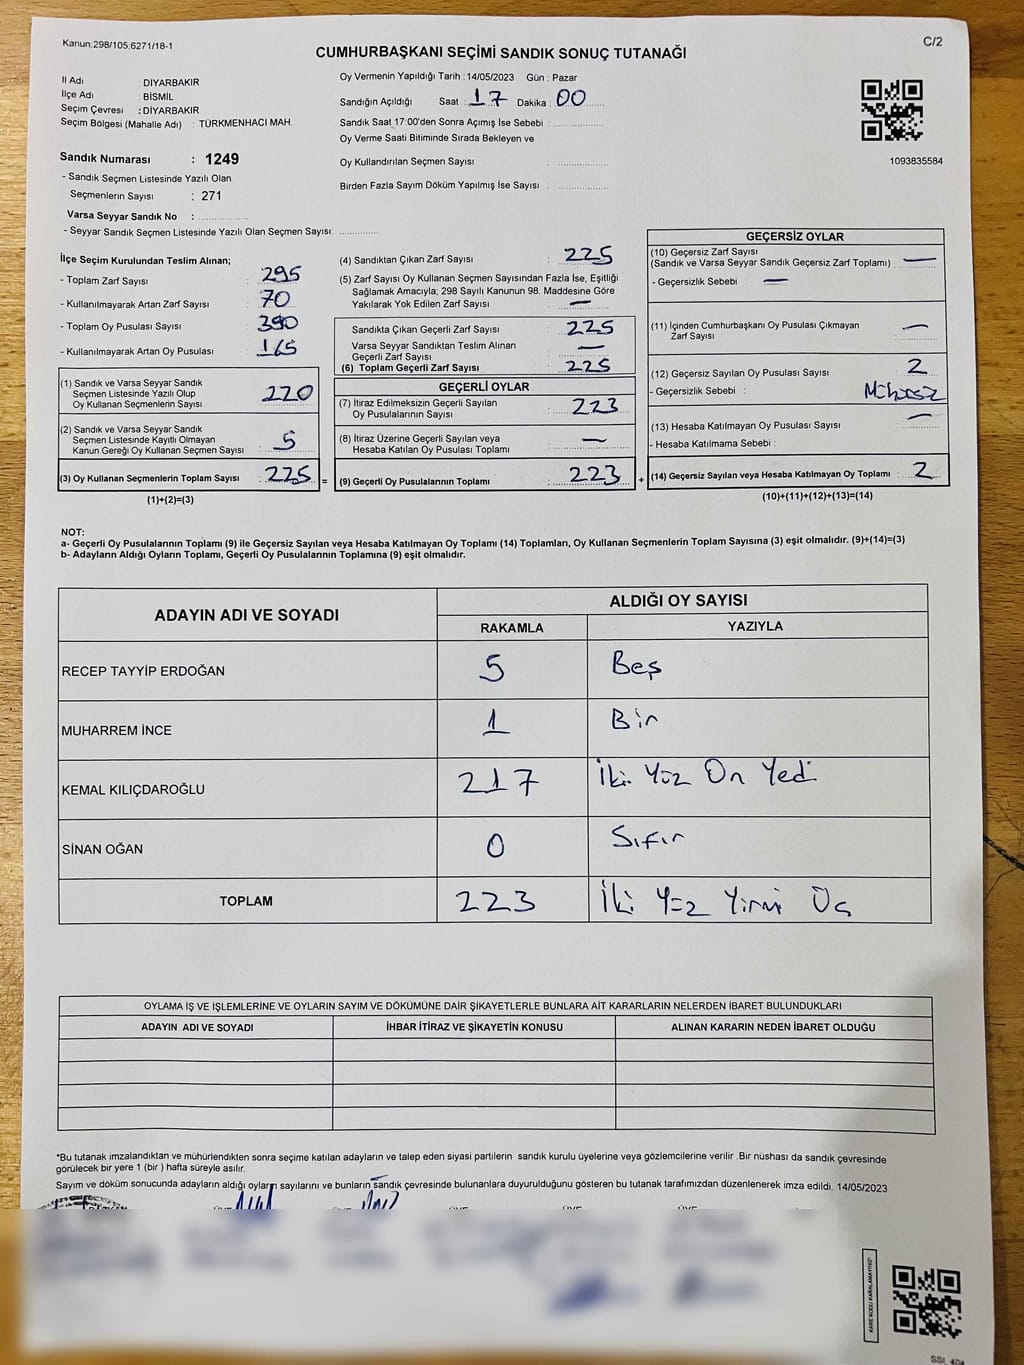 Kanun:298/105,6271/18-1
C/2
CUMHURBAŞKANI SEÇİMİ SANDIK SONUÇ TUTANAĞI
İl Adı DİYARBAKIR
İlçe Adı : BİSMİL
Seçim Çevresi : DİYARBAKIR
Seçim Bölgesi (Mahalle Adı) : TÜRKMENHACI MAH.
Oy Vermenin Yapıldığı Tarih : 14/05/2023 Gün : Pazar
Sandığın Açıldığı Saat : 17 Dakika : 00
Sandık Saat 17:00'den Sonra Açımış İse Sebebi :
Oy Verme Saati Bitiminde Sırada Bekleyen ve
Oy Kullandırılan Seçmen Sayısı :
Birden Fazla Sayım Döküm Yapılmış İse Sayısı :
1093835584
Sandık Numarası : 1249
- Sandık Seçmen Listesinde Yazılı Olan
Seçmenlerin Sayısı : 271
Varsa Seyyar Sandık No :
- Seyyar Sandık Seçmen Listesinde Yazılı Olan Seçmen Sayısı:
İlçe Seçim Kurulundan Teslim Alınan;
- Toplam Zarf Sayısı : 295
- Kullanılmayarak Artan Zarf Sayısı : 70
- Toplam Oy Pusulası Sayısı : 390
- Kullanılmayarak Artan Oy Pusulası : 165
(1) Sandık ve Varsa Seyyar Sandık
Seçmen Listesinde Yazılı Olup
Oy Kullanan Seçmenlerin Sayısı : 220
(2) Sandık ve Varsa Seyyar Sandık
Seçmen Listesinde Kayıtlı Olmayan
Kanun Gereği Oy Kullanan Seçmen Sayısı : 5
(3) Oy Kullanan Seçmenlerin Toplam Sayısı : 225 =
(1)+(2)=(3)
(4) Sandıktan Çıkan Zarf Sayısı : 225
(5) Zarf Sayısı Oy Kullanan Seçmen Sayısından Fazla İse, Eşitliği
Sağlamak Amacıyla, 298 Sayılı Kanunun 98. Maddesine Göre
Yakılarak Yok Edilen Zarf Sayısı : —
Sandıkta Çıkan Geçerli Zarf Sayısı : 225
Varsa Seyyar Sandıktan Teslim Alınan
Geçerli Zarf Sayısı : —
(6) Toplam Geçerli Zarf Sayısı : 225
GEÇERLİ OYLAR
(7) İtiraz Edilmeksizin Geçerli Sayılan
Oy Pusulalarının Sayısı : 223
(8) İtiraz Üzerine Geçerli Sayılan veya
Hesaba Katılan Oy Pusulaları Toplamı : —
(9) Geçerli Oy Pusulalarının Toplamı : 223 +
GEÇERSİZ OYLAR
(10) Geçersiz Zarf Sayısı
(Sandık ve Varsa Seyyar Sandık Geçersiz Zarf Toplamı) : —
- Geçersizlik Sebebi : —
(11) İçinden Cumhurbaşkanı Oy Pusulası Çıkmayan
Zarf Sayısı : —
(12) Geçersiz Sayılan Oy Pusulası Sayısı : 2
- Geçersizlik Sebebi : Mühürsüz
(13) Hesaba Katılmayan Oy Pusulası Sayısı : —
- Hesaba Katılmama Sebebi :
(14) Geçersiz Sayılan veya Hesaba Katılmayan Oy Toplamı : 2
(10)+(11)+(12)+(13)=(14)
NOT:
a- Geçerli Oy Pusulalarının Toplamı (9) ile Geçersiz Sayılan veya Hesaba Katılmayan Oy Toplamı (14) Toplamları, Oy Kullanan Seçmenlerin Toplam Sayısına (3) eşit olmalıdır. (9)+(14)=(3)
b- Adayların Aldığı Oyların Toplamı, Geçerli Oy Pusulalarının Toplamına (9) eşit olmalıdır.
ADAYIN ADI VE SOYADI
ALDIĞI OY SAYISI
RAKAMLA YAZIYLA
RECEP TAYYİP ERDOĞAN 5 Beş
MUHARREM İNCE 1 Bir
KEMAL KILIÇDAROĞLU 217 İki Yüz On Yedi
SİNAN OĞAN 0 Sıfır
TOPLAM 223 İki Yüz Yirmi Üç
OYLAMA İŞ VE İŞLEMLERİNE VE OYLARIN SAYIM VE DÖKÜMÜNE DAİR ŞİKAYETLERLE BUNLARA AİT KARARLARIN NELERDEN İBARET BULUNDUKLARI
ADAYIN ADI VE SOYADI İHBAR İTİRAZ VE ŞİKAYETİN KONUSU ALINAN KARARIN NEDEN İBARET OLDUĞU
*Bu tutanak imzalandıktan ve mühürlendikten sonra seçime katılan adayların ve talep eden siyasi partilerin sandık kurulu üyelerine veya gözlemcilerine verilir .Bir nüshası da sandık çevresinde
görülecek bir yere 1 (bir ) hafta süreyle asılır.
Sayım ve döküm sonucunda adayların aldığı oyların sayılarını ve bunların sandık çevresinde bulunanlara duyurulduğunu gösteren bu tutanak tarafımızdan düzenlenerek imza edildi. 14/05/2023
KARE KODU KARALAMAYINIZ!